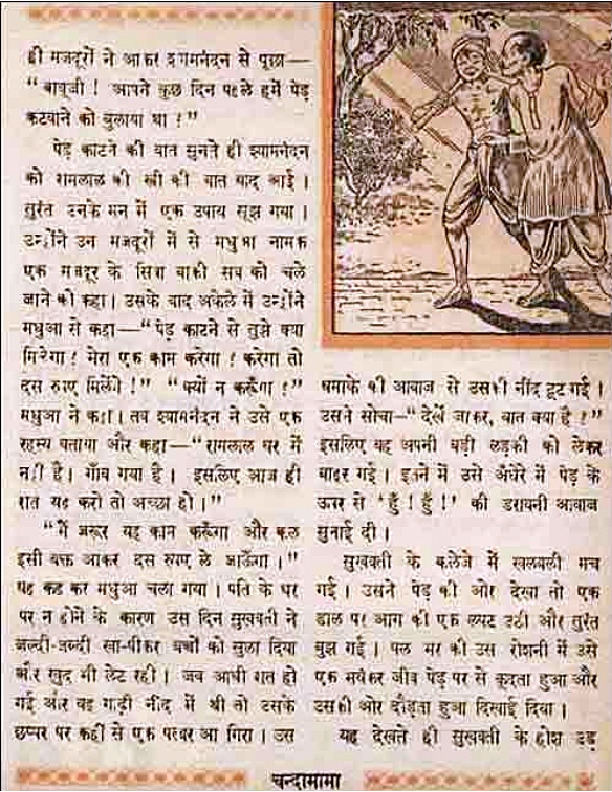 ही मजदूरों ने आकर श्यामनंदन से पूछा—
“बाबूजी ! आपने कुछ दिन पहले हमें पेड़
कटवाने को बुलाया था !”
पेड़ काटने की बात सुनते ही श्यामनंदन
को रामलाल की स्त्री की बात याद आई ।
तुरंत उनके मन में एक उपाय सूझ गया ।
उन्होंने उन मजदूरों में से मधुआ नामक
एक मजदूर के सिवा बाकी सब को चले
जाने को कहा। उसके बाद अकेले में उन्होंने
मधुआ से कहा—“पेड़ काटने से तुझे क्या
मिलेगा ! मेरा एक काम करेगा ! करेगा तो
दस रुपए मिलेंगे !” “क्यों न करूँगा !”
मधुआ ने कहा। तब श्यामनंदन ने उसे एक
रहस्य बताया और कहा—“रामलाल घर में
नहीं है। गाँव गया है। इसलिए आज ही
रात यह करो तो अच्छा हो।”
“मैं जरूर यह काम करूँगा और कल
इसी वक्त आकर दस रुपए ले जाऊँगा।”
यह कह कर मधुआ चला गया। पति के घर
पर न होने के कारण उस दिन सुखवती ने
जल्दी-जल्दी खा-पीकर बच्चों को सुला दिया
और खुद भी लेट रही। जब आधी रात हो
गई और वह गाढ़ी नींद में थी तो उसके
छप्पर पर कहीं से एक पत्थर आ गिरा। उस
धमाके की आवाज से उसकी नींद टूट गई।
उसने सोचा—“देखें जाकर, बात क्या है !”
इसलिए वह अपनी बड़ी लड़की को लेकर
बाहर गई। इतने में उसे अँधेरे में पेड़ के
ऊपर से ‘हुँ ! हुँ !’ की डरावनी आवाज
सुनाई दी।
सुखवती के कलेजे में खलबली मच
गई। उसने पेड़ की ओर देखा तो एक
डाल पर आग की एक लपट उठी और तुरंत
बुझ गई। पल भर की उस रोशनी में उसे
एक भयंकर जीव पेड़ पर से कूदता हुआ और
उसकी ओर दौड़ता हुआ दिखाई दिया।
यह देखते ही सुखवती के होश उड़
चन्दामामा